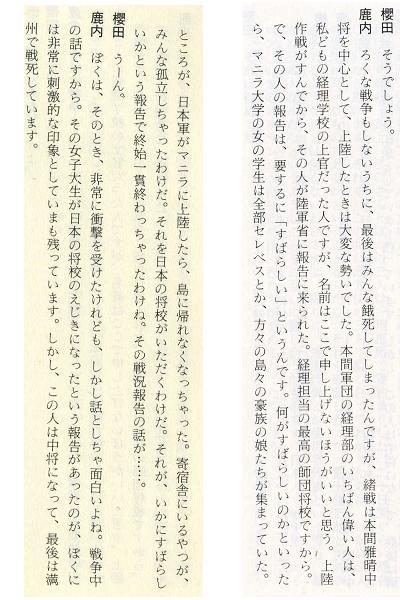 櫻田　そうでしょう。
鹿内　ろくな戦争もしないうちに、最後はみんな餓死してしまったんですが、緒戦は本間雅晴中
将を中心として、上陸したときは大変な勢いでした。本間軍団の経理部のいちばん偉い人は、
私どもの経理学校の上官だった人ですが、名前はここで申し上げないほうがいいと思う。上陸
作戦がすんでから、その人が陸軍省に報告に来られた。経理担当の最高の師団将校ですから。
で、その人の報告は、要するに「すばらしい」というんです。何がすばらしいのかといった
ら、マニラ大学の女の学生は全部セレベスとか、方々の島々の豪族の娘たちが集まっていた。
ところが、日本軍がマニラに上陸したら、島に帰れなくなっちゃった。寄宿舎にいるやつが、
みんな孤立しちゃったわけだ。それを日本の将校がいただくわけだ。それが、いかにすばらし
いかという報告で終始一貫終わっちゃったわけね。その戦況報告の話が……。
櫻田　うーん。
鹿内　ぼくは、そのとき、非常に衝撃を受けたけれども、しかし話としちゃ面白いよね。戦争中
の話ですから。その女子大生が日本の将校のえじきになったという報告があったのが、ぼくに
は非常に刺激的な印象としていまも残っています。しかし、この人は中将になって、最後は満
州で戦死しています。